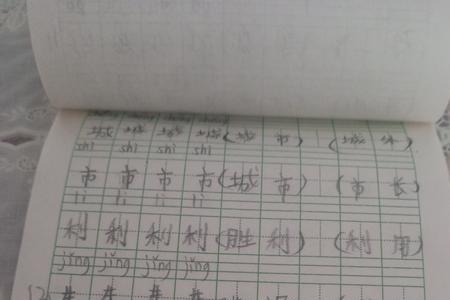 城 城 城 城 (城 市) (城 外)
shi shi shi shi
市 市 市 市 (城 市) (市 长)
li li li li
利 利 利 利 (胜 利) (利 用)
jǐng jǐng jǐng jǐng